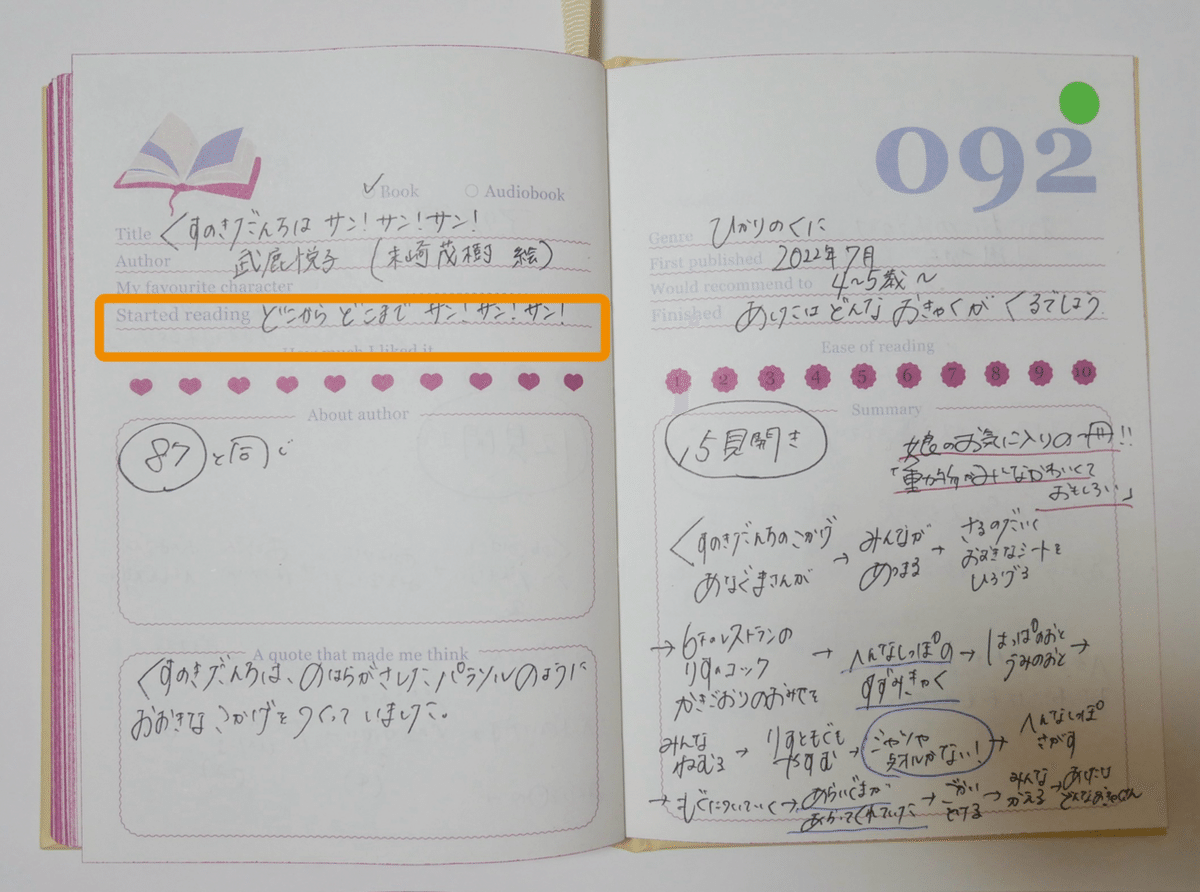 Book
Audiobook
Title くすのきだんちは サン!サン!サン!
Author 武鹿悦子 (末崎茂樹 絵)
My favourite character
Started reading どこから どこまで サン!サン!サン!
How much I liked it
About author
87 と同じ
A quote that made me think
くすのきだんちは、のはらがさした パラソルのように
おおきな こかげを つくって いました。
092
Genre ひかりのくに
First published 2022年 7月
Would recommend to 4〜5歳〜
Finished あしたは どんな おきゃくが くるでしょう
Ease of reading
1 2 3 4 5 6 7 8 9 10
Summary
15見開き
娘のお気に入りの一冊!!
「動物がみんなかわいくて
おもしろい」
くすのきだんちのこかげ
あなぐまさんが
→ みんなが
あつまる
→ さるのだいく
おおきなシートを
ひろげる
→ もりのレストランの
りすのコック
かきごおりのおみせを
→ へんなしっぽの
すずみきゃく
→ はっぱのおと
うみのおと →
みんな
ねむる
→ りすともぐも
やすむ
→ シャツや
タオルがない!
→ へんなしっぽ
さがす
→ もぐについていく
→ あらいぐまが
あらってくれていた
→ ごかい
とける
→ みんな
かえる
→ あしたは
どんなおきゃくさん